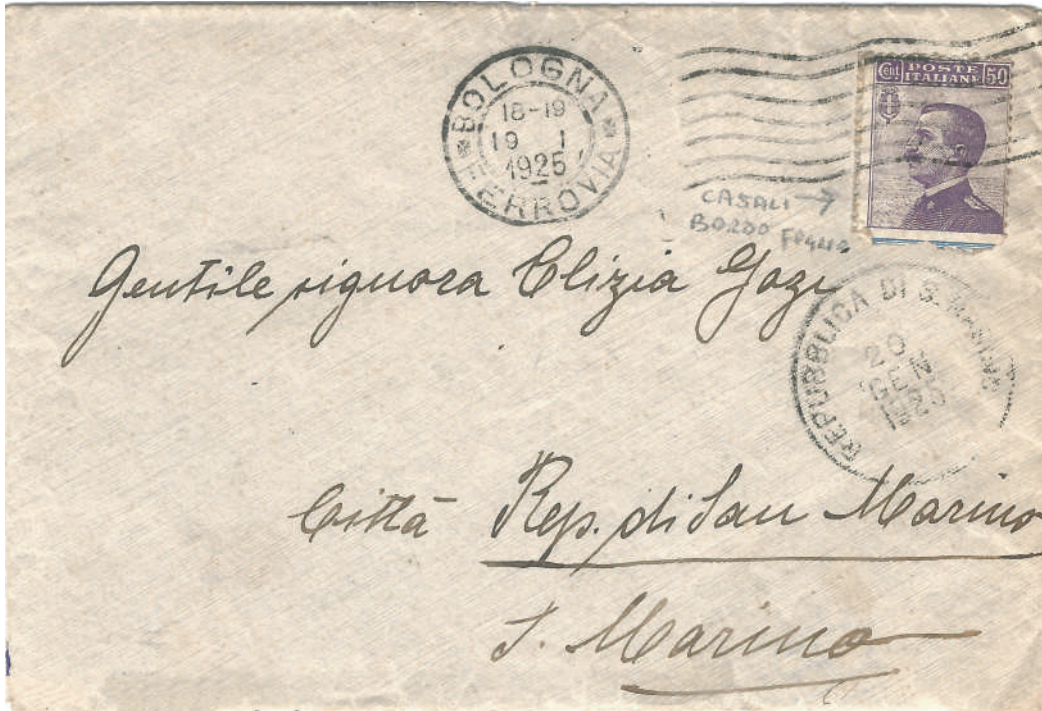 BOLOGNA
18-19
19 I
1925
FERROVIA
Cent POSTE ITALIANE 50
CASALI →
BORDO FOGLIO
Gentile signora Clizia Gozi
REPUBBLICA DI S. MARINO
20
GEN
1925
Città Rep. di San Marino
S. Marino